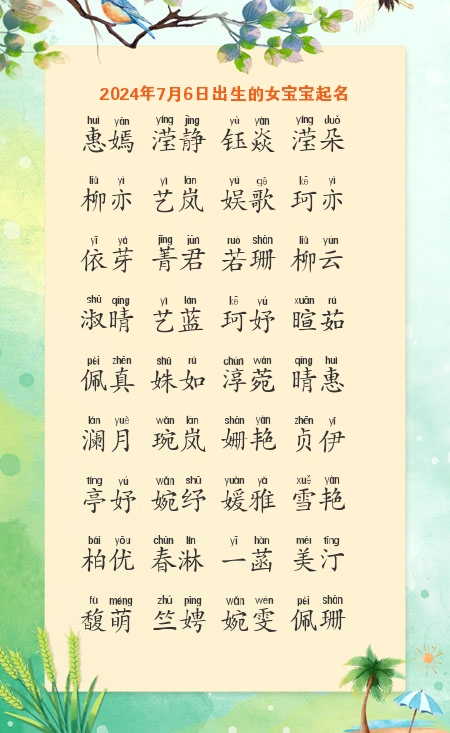 2024年7月6日出生的女宝宝起名
huì yān yíng jìng yù yàn yíng duǒ
惠嫣 滢静 钰焱 滢朵
liǔ yì yì lán yú gē kē yì
柳亦 艺岚 娱歌 珂亦
yī yá jīng jūn ruò shān liǔ yún
依芽 菁君 若珊 柳云
shū qíng yì lán kē yú xuān rú
淑晴 艺蓝 珂妤 暄茹
pèi zhēn shū rú chún wǎn qíng huì
佩真 姝如 淳菀 晴惠
lán yuè wǎn lán shān yàn zhēn yī
澜月 琬岚 姗艳 贞伊
tíng yú wǎn shū yuàn yǎ xuě yàn
亭妤 婉纾 媛雅 雪艳
bǎi yōu chūn lín yī hàn měi tīng
柏优 春淋 一菡 美汀
fù méng zhú pīng wǎn wén pèi shān
馥萌 竺娉 婉雯 佩珊